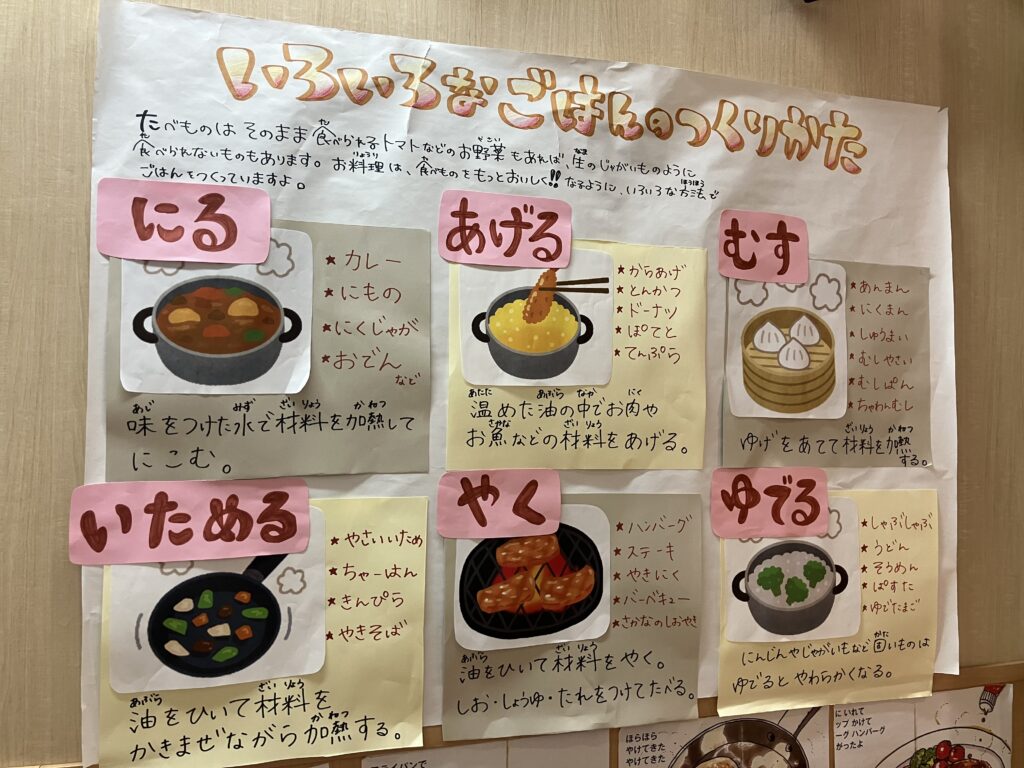 いろいろなごはんのつくりかた
たべものは そのまま 食べられる トマトなどのお野菜 もあれば、生のじゃがいものように
食べられないものもあります。お料理は、食べものをもっとおいしく!! なるように、いろいろな方法で
ごはんをつくっていますよ。
にる
★カレー
★にもの
★にくじゃが
★おでん
など
味をつけた水で材料を加熱して
にこむ。
あげる
★からあげ
★とんかつ
★ドーナツ
★ぽてと
★てんぷら
温めた油の中でお肉や
お魚などの材料をあげる。
むす
★あんまん
★にくまん
★しゅうまい
★むしやさい
★むしぱん
★ちゃわんむし
ゆげをあてて材料を加熱
する。
いためる
★やさいいため
★ちゃーはん
★きんぴら
★やきそば
油をひいて材料を
かきまぜながら加熱する。
やく
★ハンバーグ
★ステーキ
★やきにく
★バーベキュー
★さかなのしおやき
油をひいて材料をやく。
しお・しょうゆ・たれをつけてたべる。
ゆでる
★しゃぶしゃぶ
★うどん
★そうめん
★ぱすた
★ゆでたまご
にんじんやじゃがいもなど固いものは
ゆでるとやわらかくなる。
フライパンで
ほらほら
やけてきた
やけてきた
にいれて
ップ かけて
ーグ ハンバーグ
がったよ